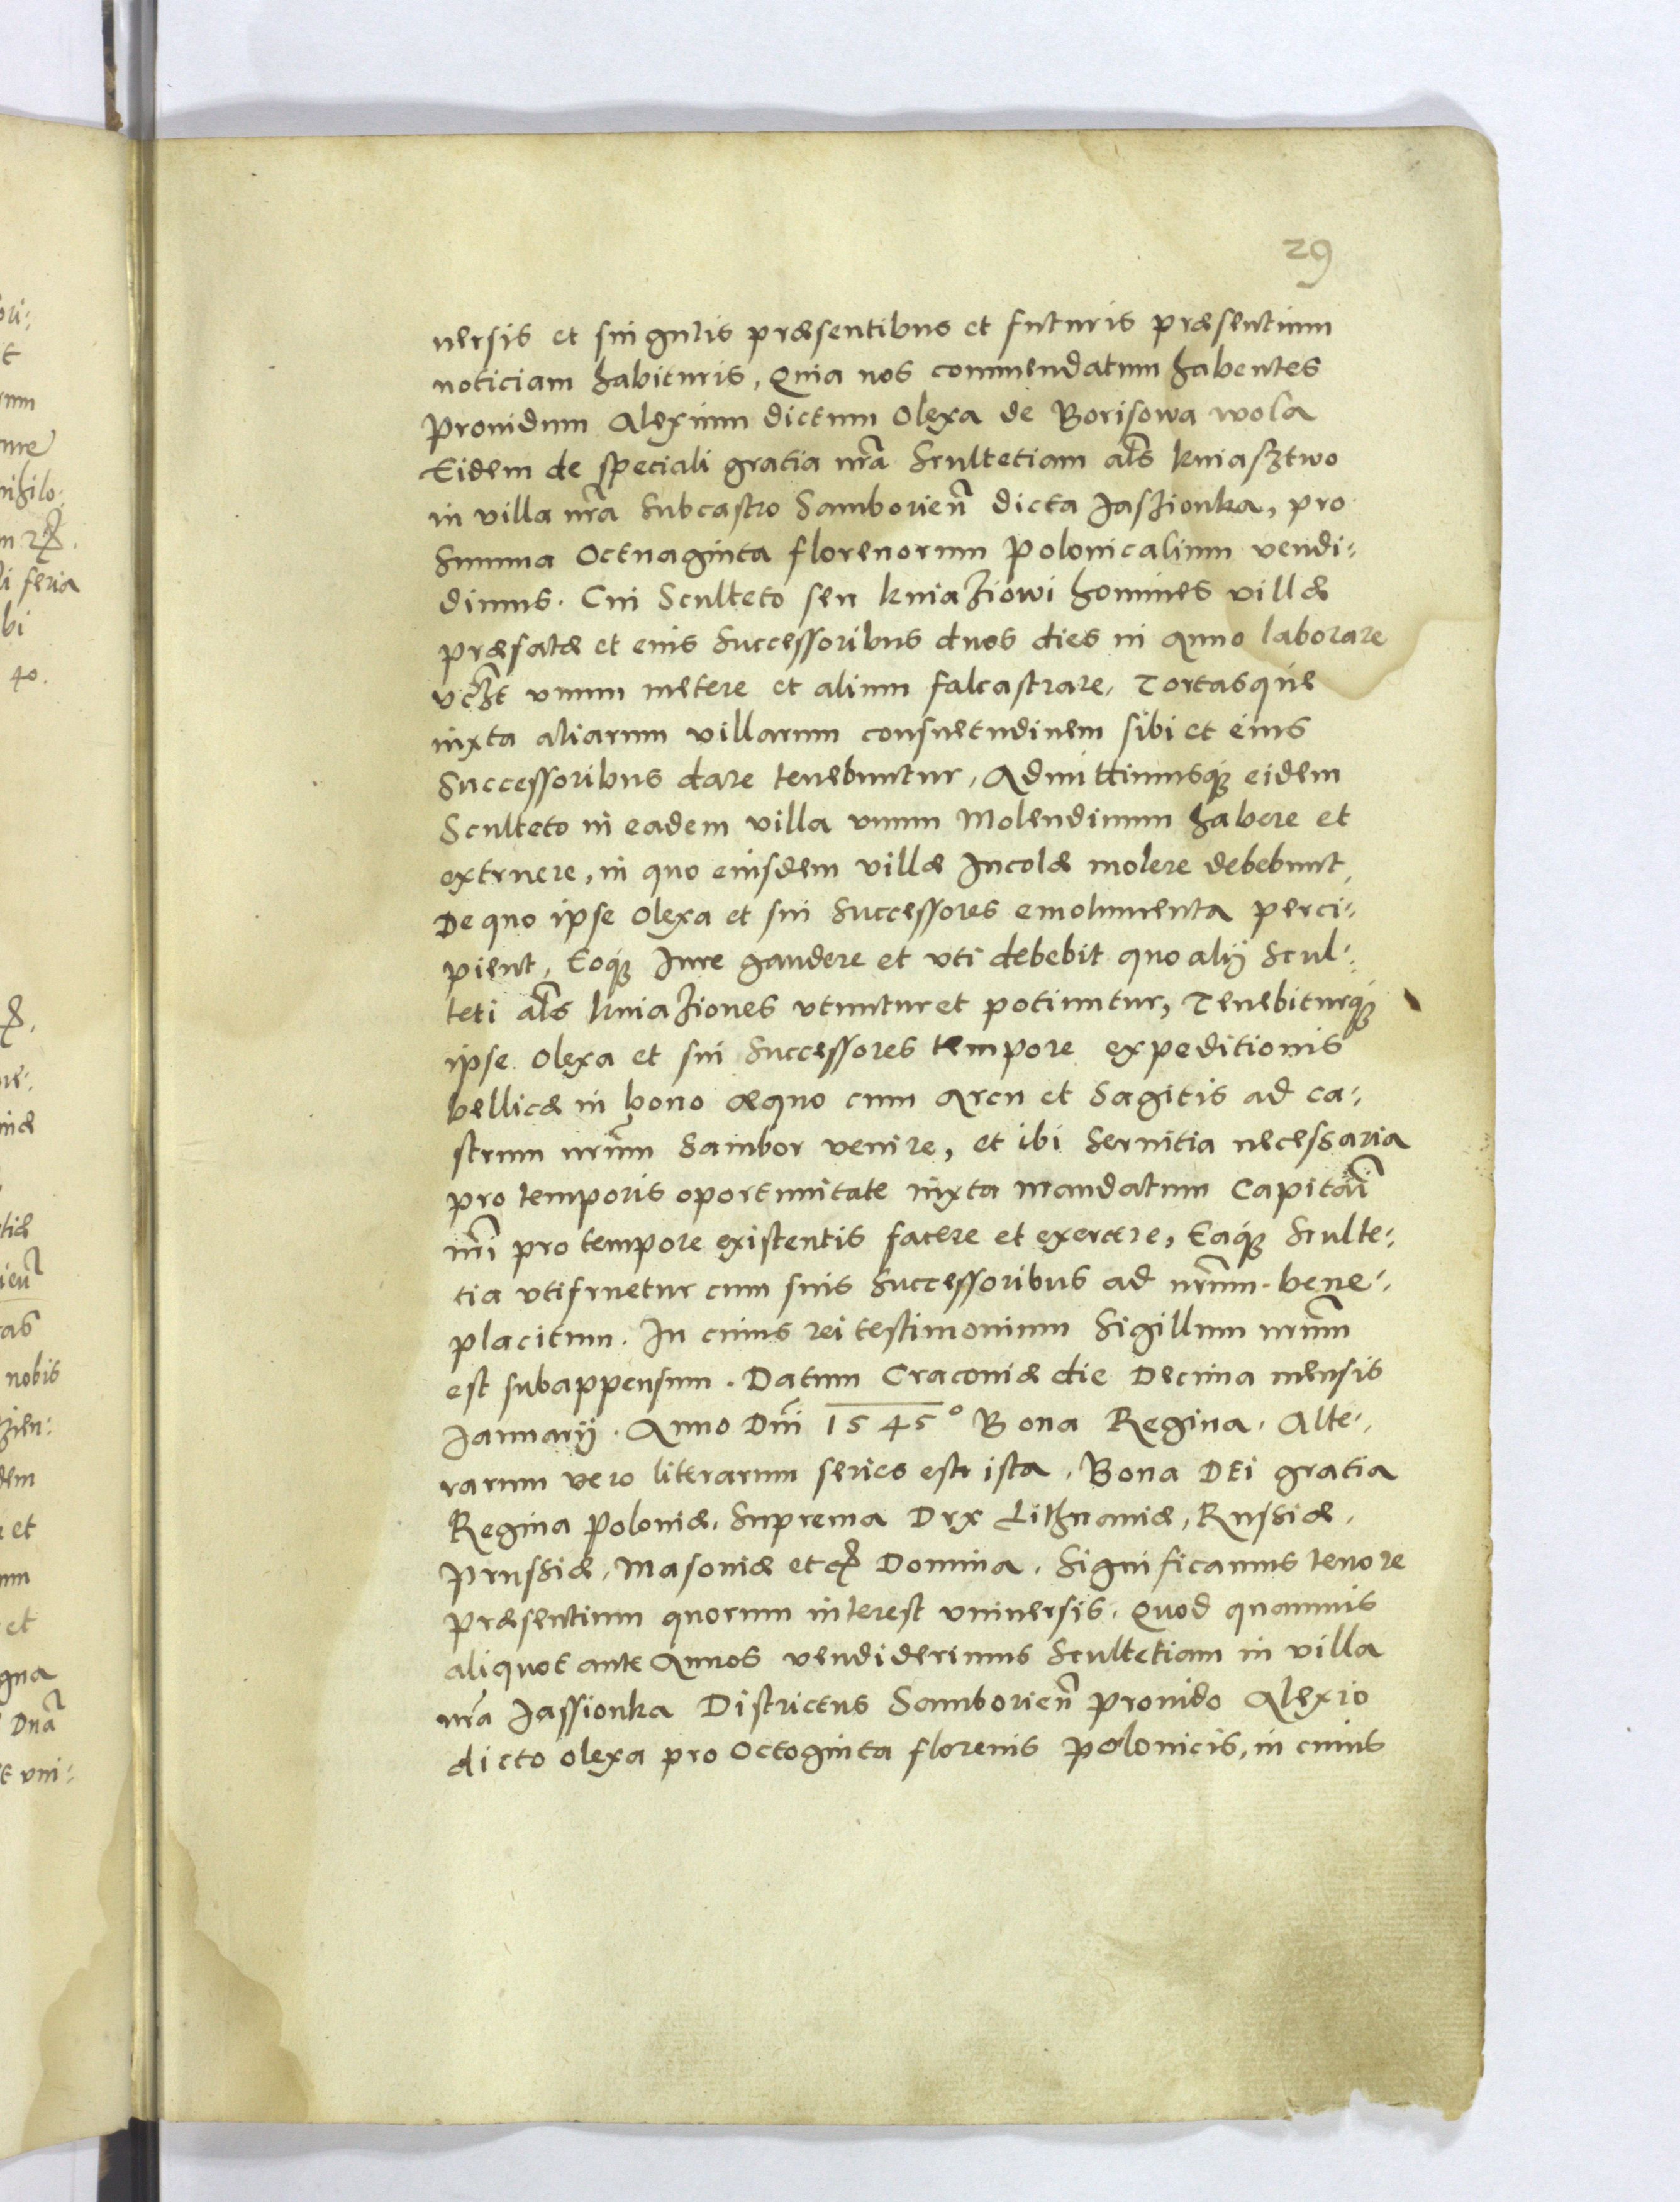 29
uersis et singulis præsentibus et futuris præsentium
noticiam habituris, Quia nos commendatum habentes
Prouidum Alexium dictum Olexa de Borisowa wola
Eidem de speciali gratia nr̃a Scultetiam al̃s kniasztwo
in villa nr̃a Subcastro Samborien̄ dicta Jaszionka, pro
Summa Octuaginta florenorum Polonicalium vendi:
dimus. Cui Sculteto seu kniaziowi homines villæ
præfatæ et eius Successoribus duos dies in Anno laborare
vcꝫt vnum metere et alium falcastrare, Tortasque
iuxta aliarum villarum consuetudinem sibi et eius
Successoribus dare tenebuntur, Admittimusqꝫ eidem
Sculteto in eadem villa vnum Molendinum habere et
extruere, in quo eiusdem villæ Incolæ molere debebunt,
De quo ipse Olexa et sui Successores emolumenta perci:
pient, Eoqꝫ Iure gaudere et vti debebit quo alij Scul:
teti al̃s kniaziones vtuntur et potiuntur, Tenebiturqꝫ
ipse Olexa et sui Successores tempore expeditionis
bellicæ in bono æquo cum Arcu et Sagitis ad ca:
strum nr̃um Sambor venire, et ibi Seruitia necessaria
pro temporis oportunitate iuxta mandatum Capitãi
nr̃i pro tempore existentis facere et exercere, Eaqꝫ Sculte:
tia vtifruetur cum suis Successoribus ad nr̃um bene:
placitum. In cuius rei testimonium Sigillum nr̃um
est subappensum. Datum Cracouiæ die Decima mensis
Januarij. Anno Dñi 1545° Bona Regina. Alte:
rarum vero literarum series est ista. Bona DEi gratia
Regina Poloniæ, Suprema Dux Lithuaniæ, Russiæ,
Prussiæ, Masouiæ etc̃ Domina. Significamus tenore
præsentium quorum interest vniuersis. Quod quamuis
aliquot ante Annos vendiderimus Scultetiam in villa
nr̃a Jassionka Districtus Samborien̄ Prouido Alexio
dicto Olexa pro Octoginta florenis Polonicis, in cuius